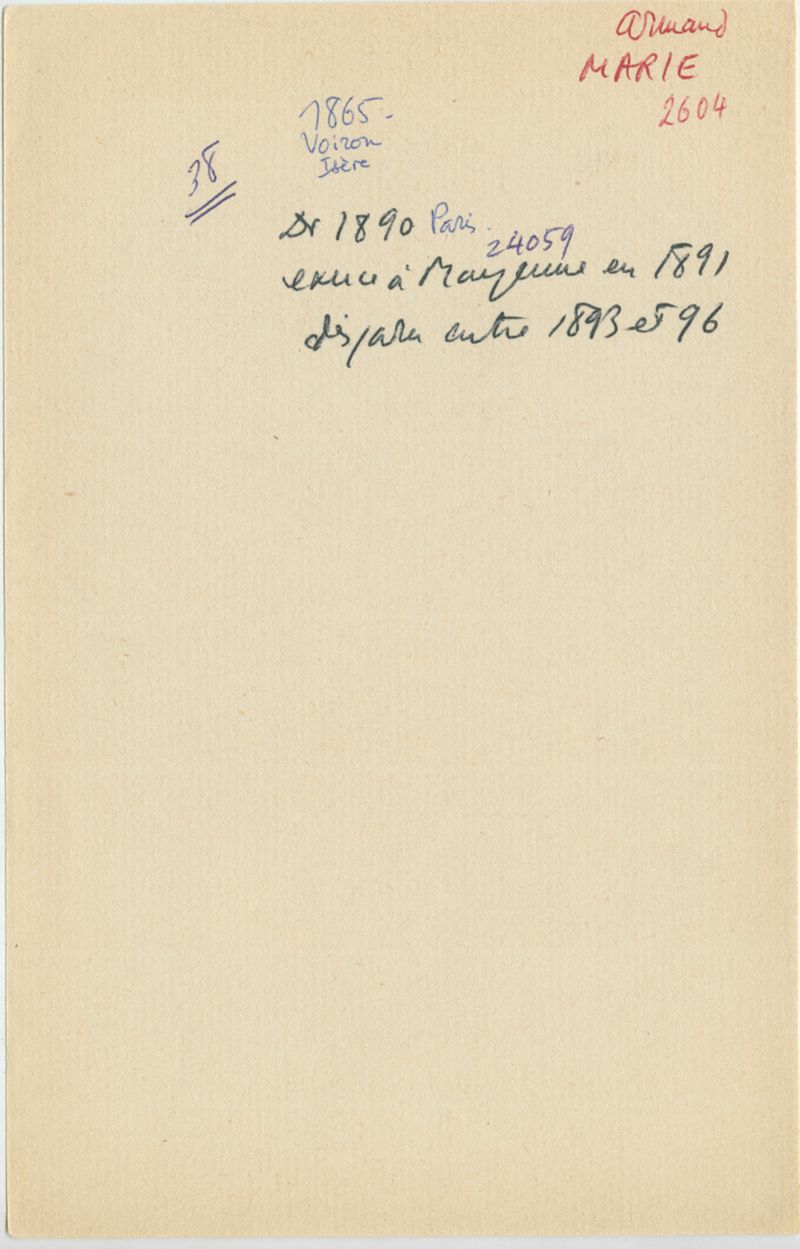 Armand
MARIE
2604
1865-
Voiron
Isère
38
Dr 1890 Paris.
24059
exerce à Mayenne en 1891
disparu entre 1893 et 96